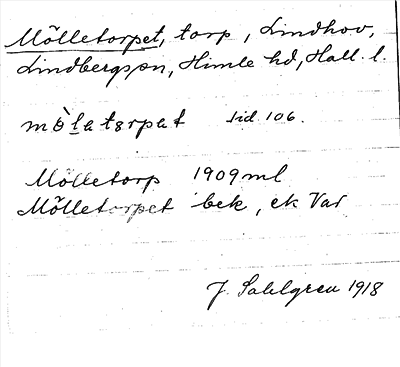 Mölletorpet, torp, Lindhov,
Lindbergs sn, Himle hd, Hall. l.
mòlatǫrpat sid. 106.
Mölletorp 1909 ml
Mölletorpet bek, ek Var
J. Sahlgren 1918